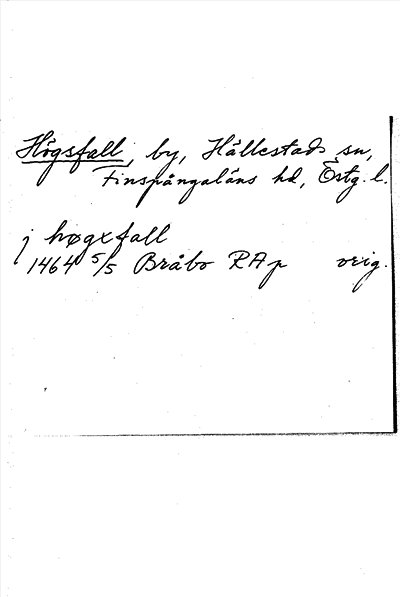 Högsfall, by, Hällestads sn,
Finspångaläns hd, Östg. l.
j høgxfall
1464 5/5 Bråbo RAp orig.